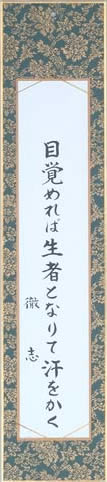 目覚めれば生者となりて汗をかく
徹志